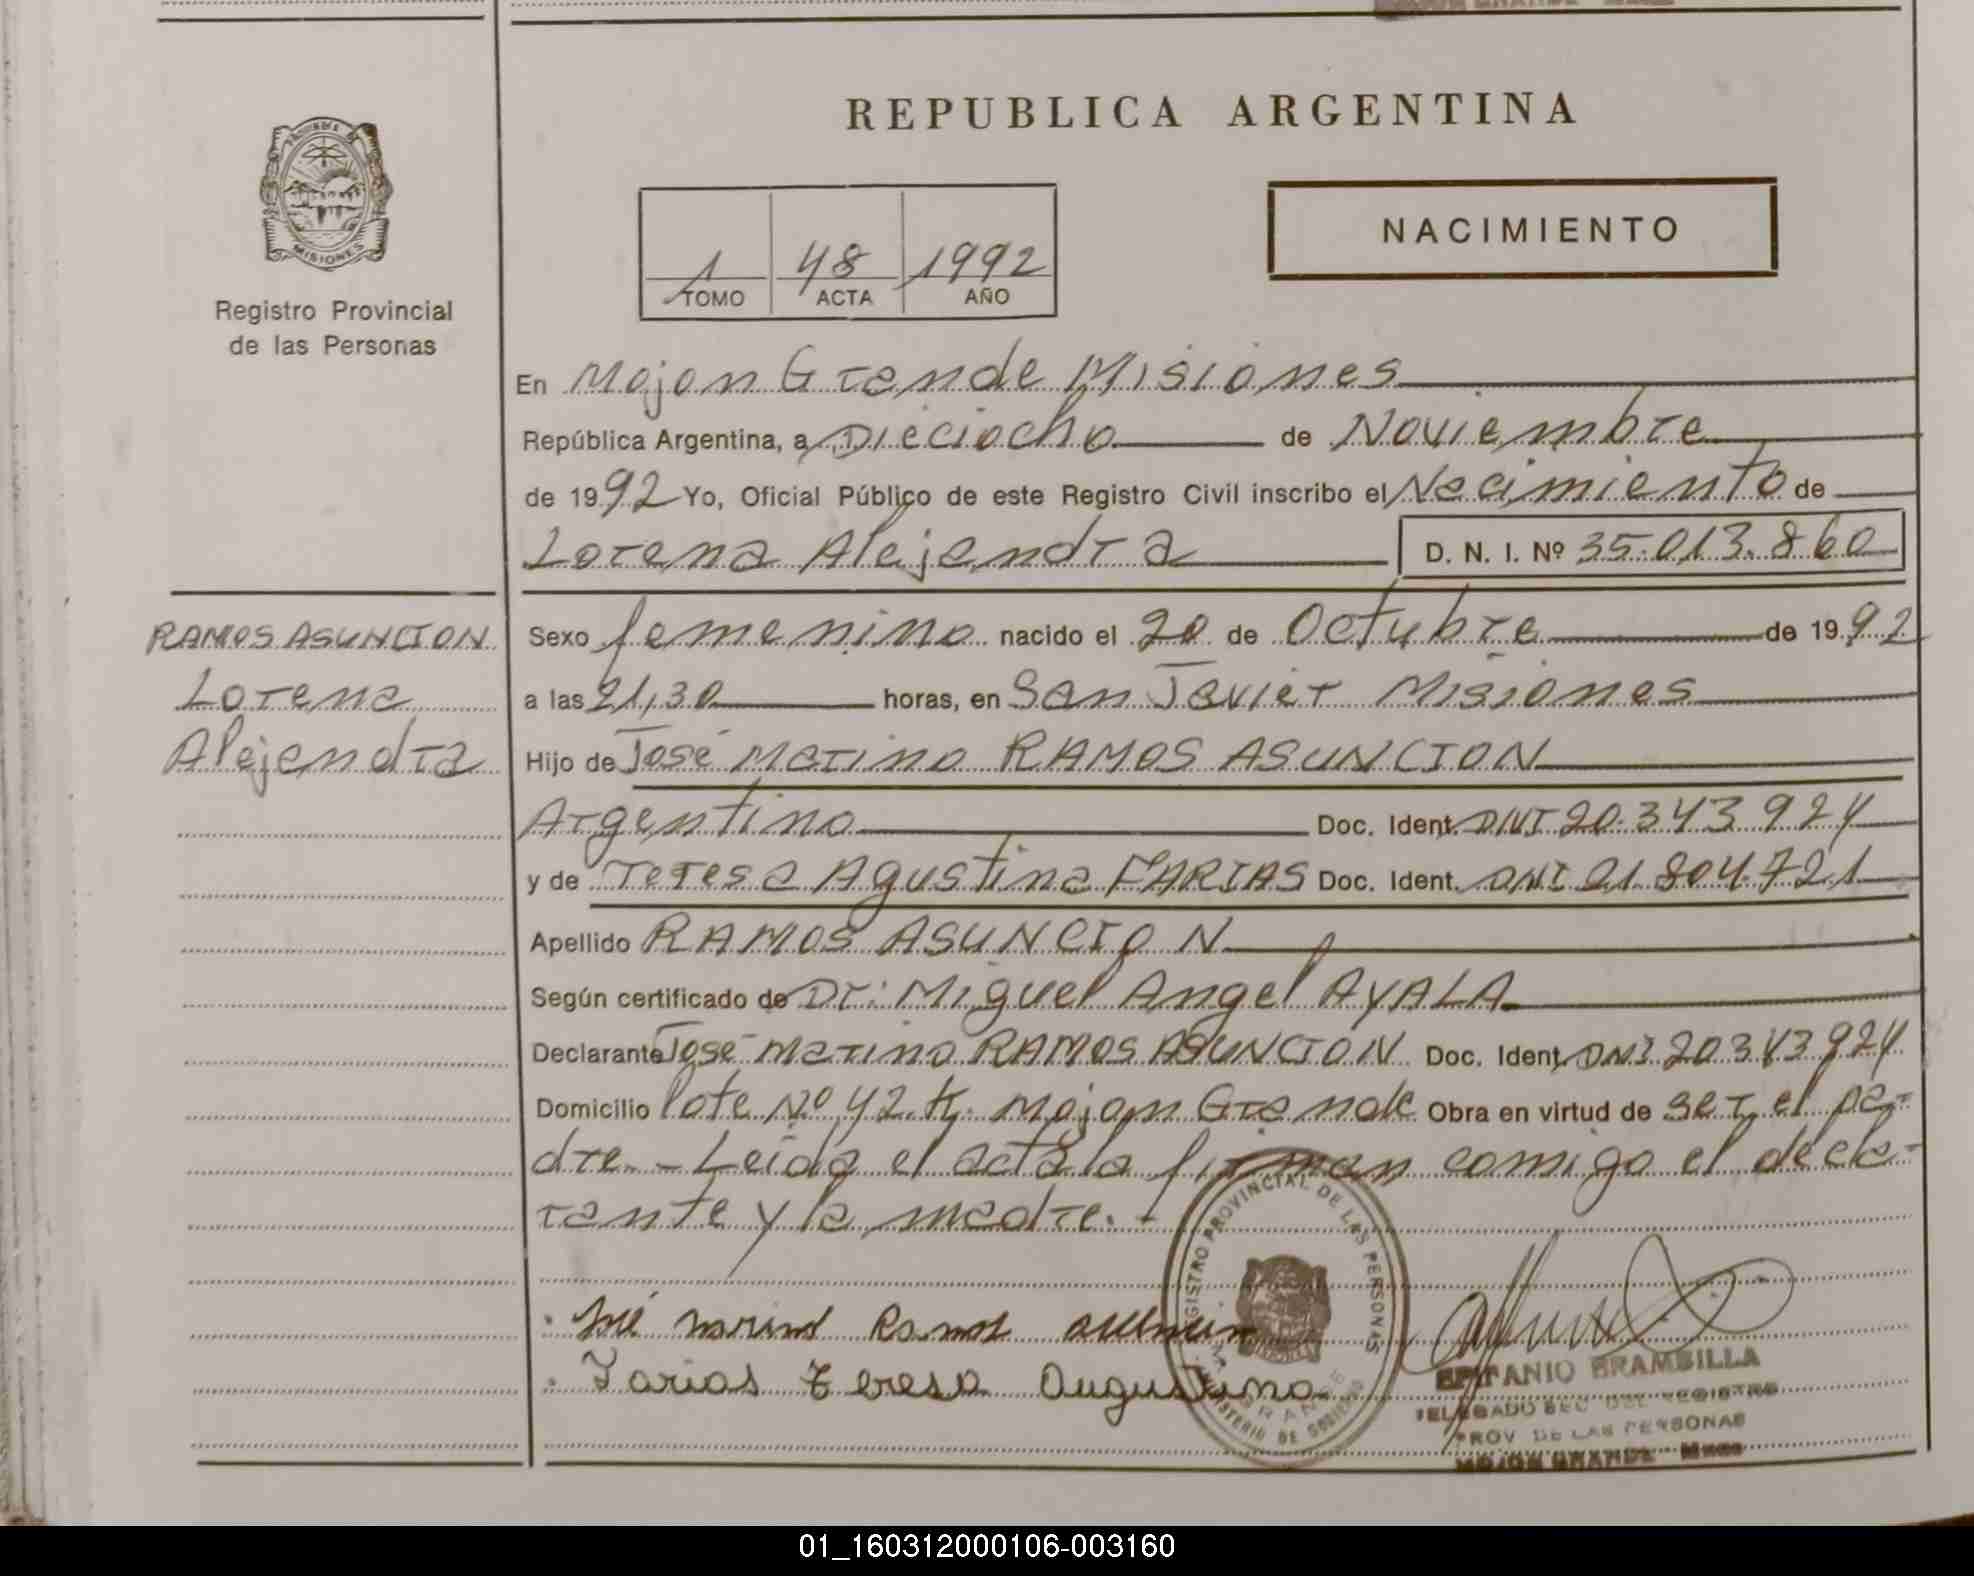 REPUBLICA ARGENTINA
NACIMIENTO
1 48 1992
TOMO ACTA AÑO
MISIONES
Registro Provincial
de las Personas
En Mojon Grande Misiones
República Argentina, a Dieciocho de Noviembre
de 1992 Yo, Oficial Público de este Registro Civil inscribo el Nacimiento de
Lorena Alejandra D. N. I. Nº 35.013.860
RAMOS ASUNCION
Lorena
Alejandra
Sexo femenino nacido el 20 de Octubre de 1992
a las 21,30 horas, en San Javier Misiones
Hijo de José Marino RAMOS ASUNCION
Argentino Doc. Ident. DNI 20.343.924
y de Teresa Agustina FARIAS Doc. Ident. DNI 21.804.721
Apellido RAMOS ASUNCION
Según certificado de Dr: Miguel Angel AYALA
Declarante José Marino RAMOS ASUNCION Doc. Ident. DNI 20.343.924
Domicilio lote Nº 42 Mojon Grande Obra en virtud de ser el pa-
dre.- Leida el acta la firman comigo el decla-
rante y la madre.-
REGISTRO PROVINCIAL DE LAS PERSONAS
MINISTERIO DE GOBIERNO
José marino Ramos asuncion
Farias teresa Augustina
EPIFANIO BRAMBILLA
DELEGADO SEC DEL REGISTRO
PROV DE LAS PERSONAS
MOJON GRANDE
01_160312000106-003160